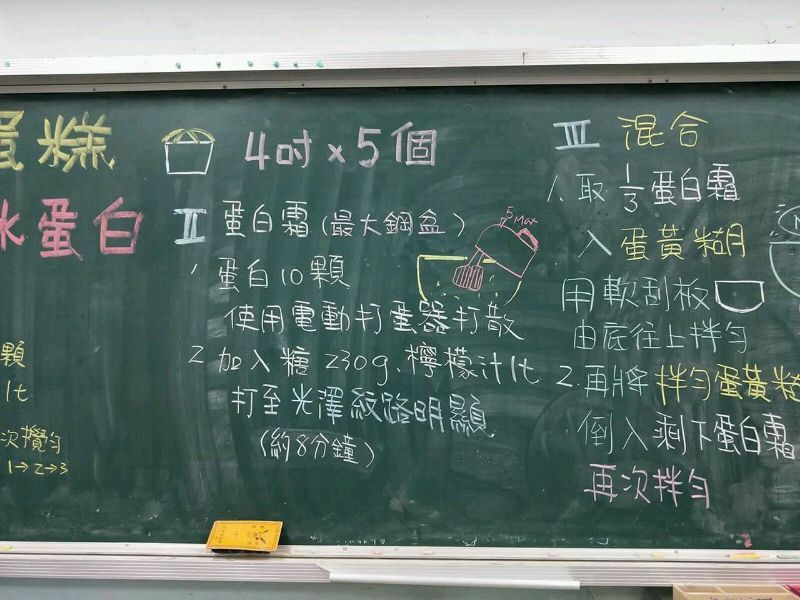 蛋糕
水蛋白
顆
1t
次攪勻
1→2→3
4吋×5個
II 蛋白霜(最大鋼盆)
1. 蛋白10顆
使用電動打蛋器打散
2. 加入糖230g、檸檬汁1t
打至光澤紋路明顯
(約8分鐘)
5 Max
III 混合
1. 取1/3蛋白霜
入蛋黃糊
用軟刮板
由底往上拌勻
2. 再將拌勻蛋黃糊
倒入剩下蛋白霜
再次拌勻